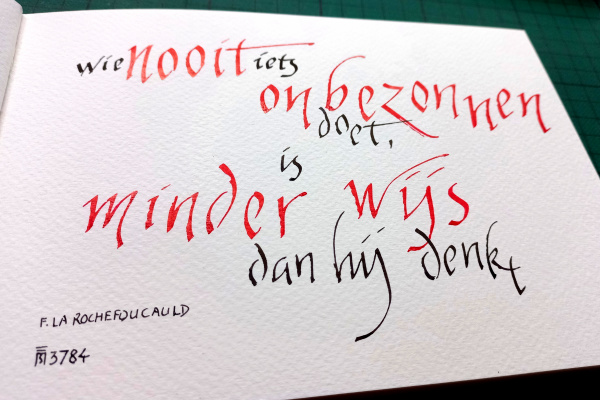 wie nooit iets
onbezonnen
doet,
is
minder wijs
dan hij denkt
F. LA ROCHEFOUCAULD
3784